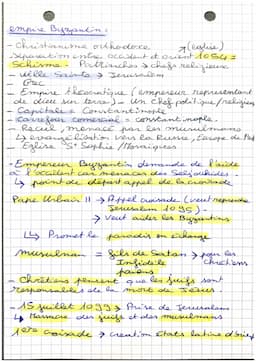 empire Byzantin :
- Christianisme orthodoxe
↗ (eglise)
Séparation entre occident et orient 1054 =
Schisme. Patriarches → chefs religieux
- Ville Sainte → Jerusalem
- Grec
- Empire théocratique (empereur representant
de dieu sur terre) - Un chef politique/religieux
- Capitale = Constantinople
- Carrefour comercial = constantinople.
- Recul, menacé par les musulmans
↳ evangelisation vers la Russie, Europe de l'est
- Eglise Ste Sophie / Mosaiques
- Empereur Byzantin demande de l'aide
à l'occident car menacé des Seljoukides.
↳ point de départ appel de la croisade
Pape Urbain II → Appel croisade (veut reprendre
Jerusalem 1095).
→ Veut aider les Byzantins
↳ Promet le paradis en echange
musulman = fils de Satan → pour les
Infidele chrétiens
paiens
- Chrétiens pensent que les juifs sont
responsables de la mort de Jesus.
- 15 juillet 1099 → Prise de Jerusalem
↳ Massacre des juifs et des musulmans
1ere croisade → creation Etats latins d'orient